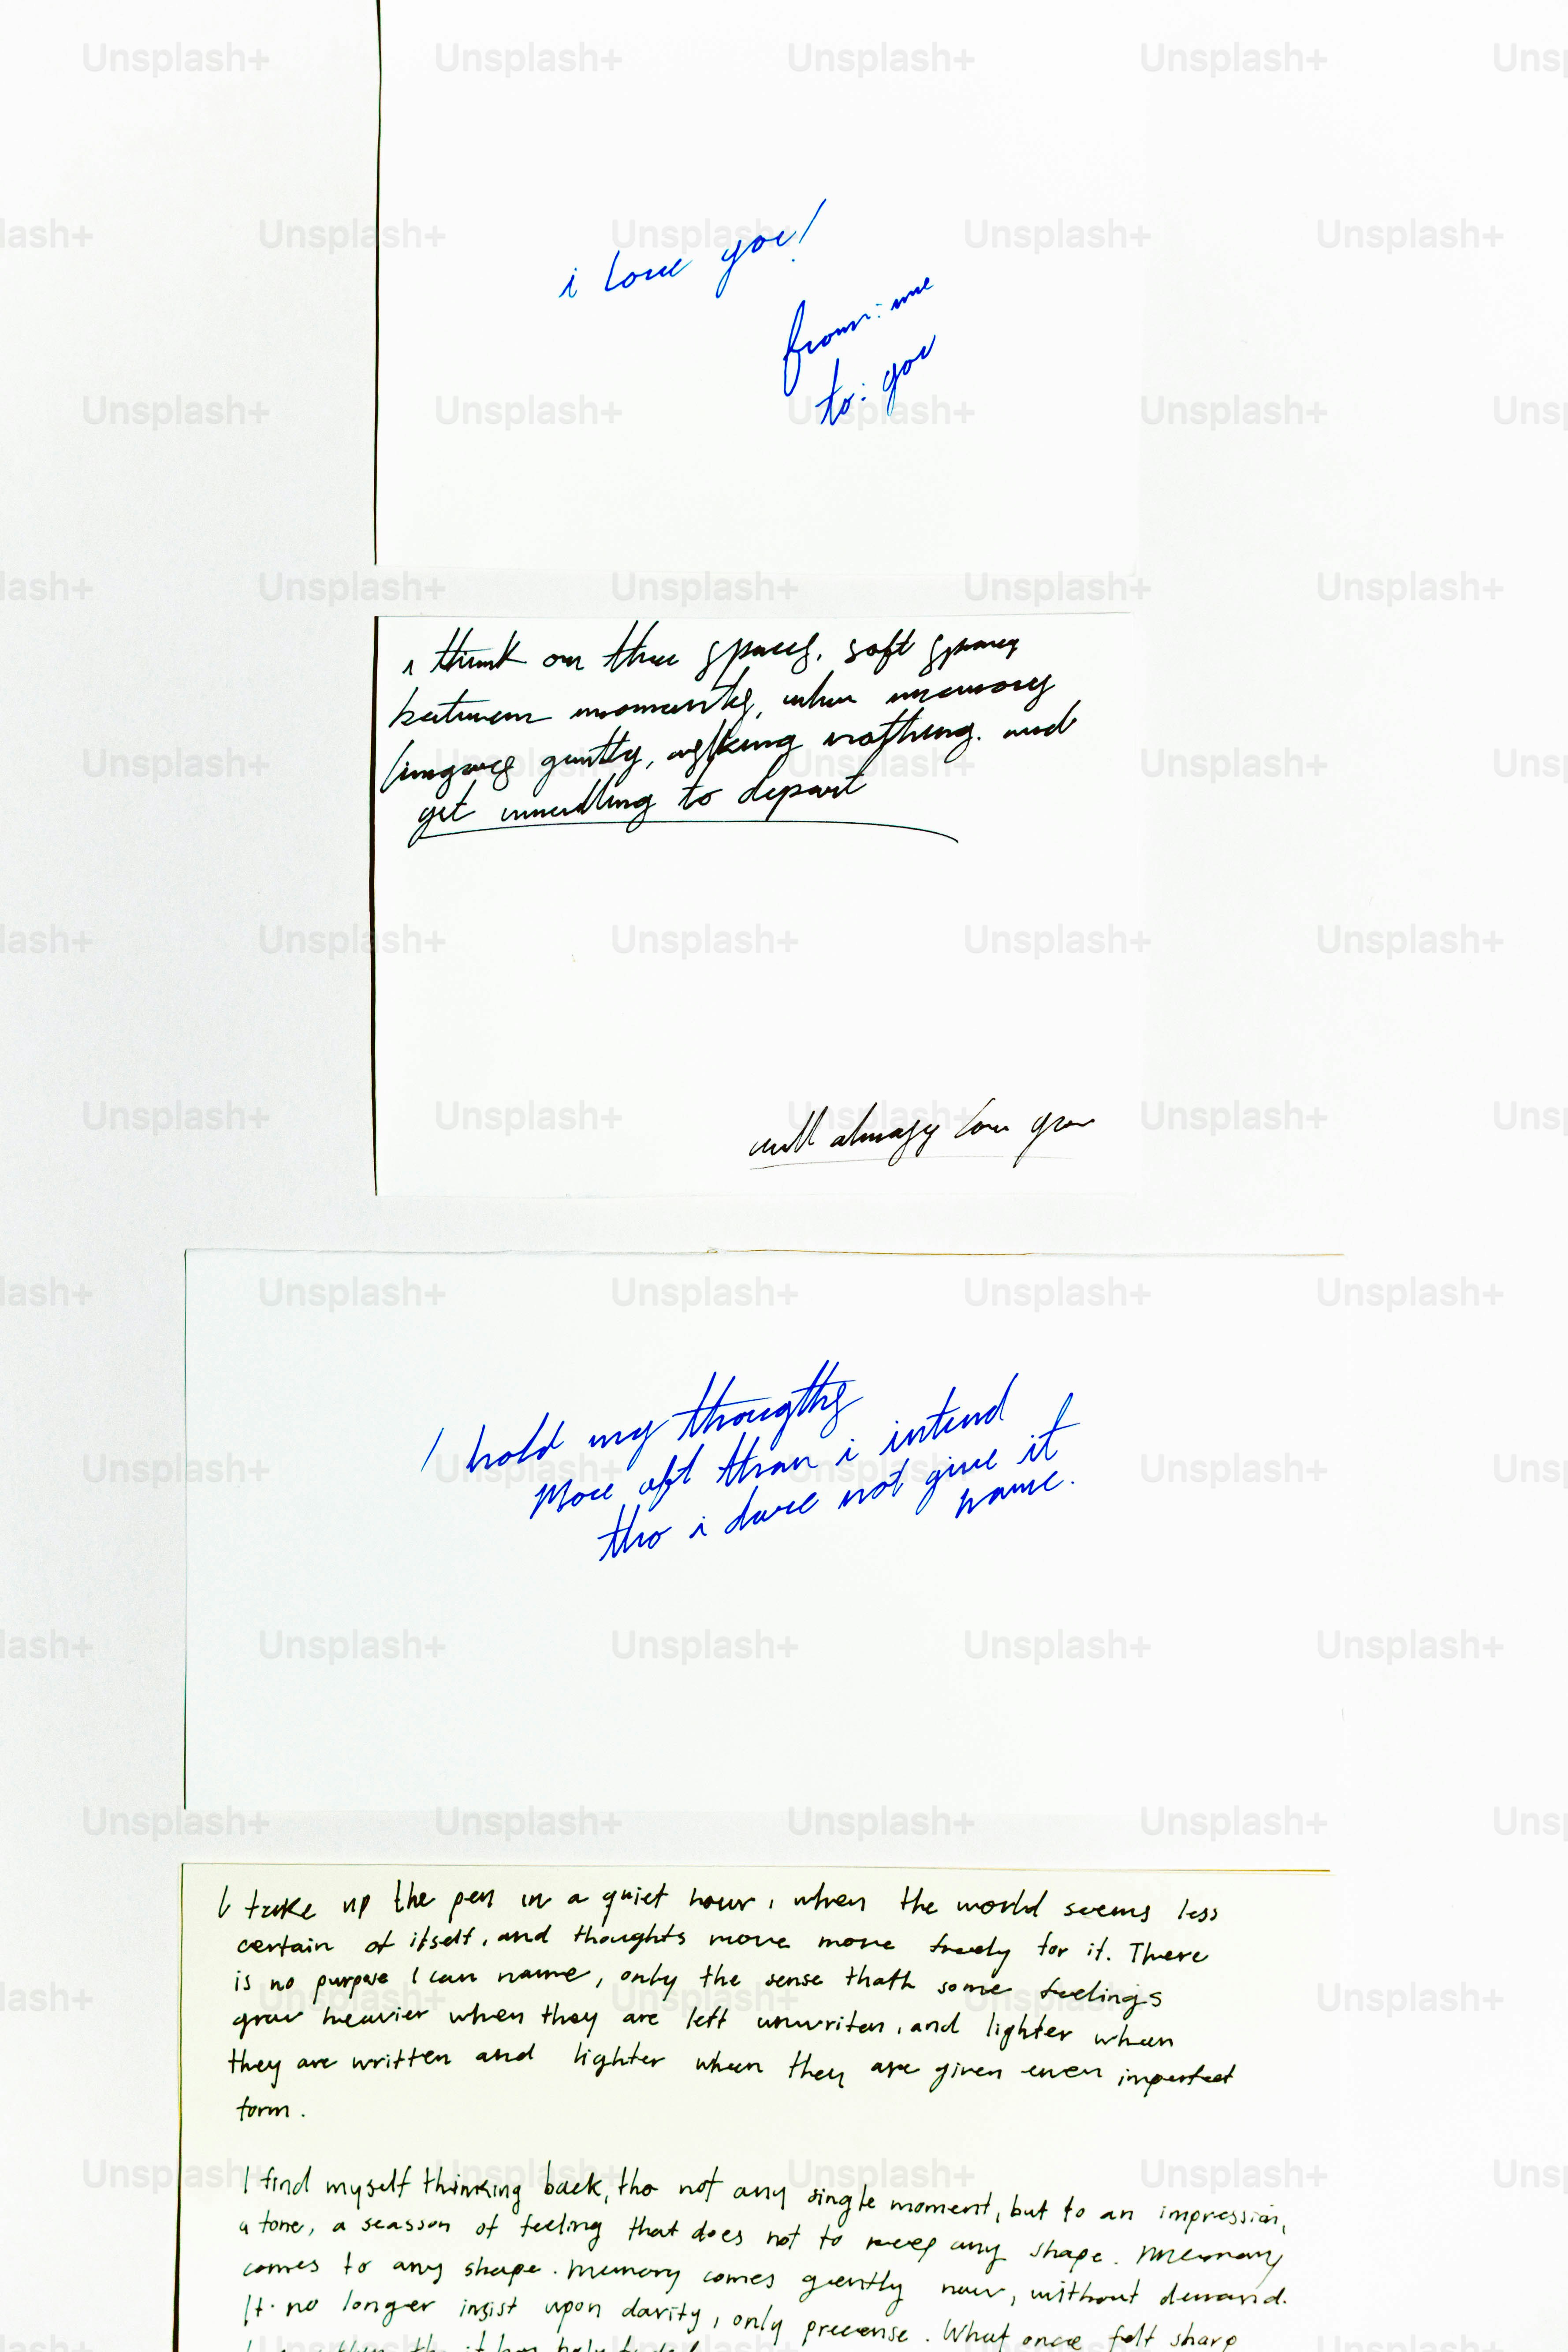 i love you!
from: me
to: you
i think on thee spaces, soft spaces
between moments, when memory
lingers gently, asking nothing. and
yet unwilling to depart
will always love you
I hold my thougths
More oft than i intend
tho i dare not give it
name.
I take up the pen in a quiet hour, when the world seems less
certain of itself, and thoughts move more freely for it. There
is no purpose I can name, only the sense thath some feelings
grow heavier when they are left unwriten, and lighter when
they are written and lighter when they are given even imperfect
form.
I find myself thinking back, tho not any single moment, but to an impression,
a tone, a seasson of feeling that does not to keep any shape. Memory
comes to any shape. Memory comes gently now, without demand.
It no longer insist upon clarity, only precense. What once felt sharp